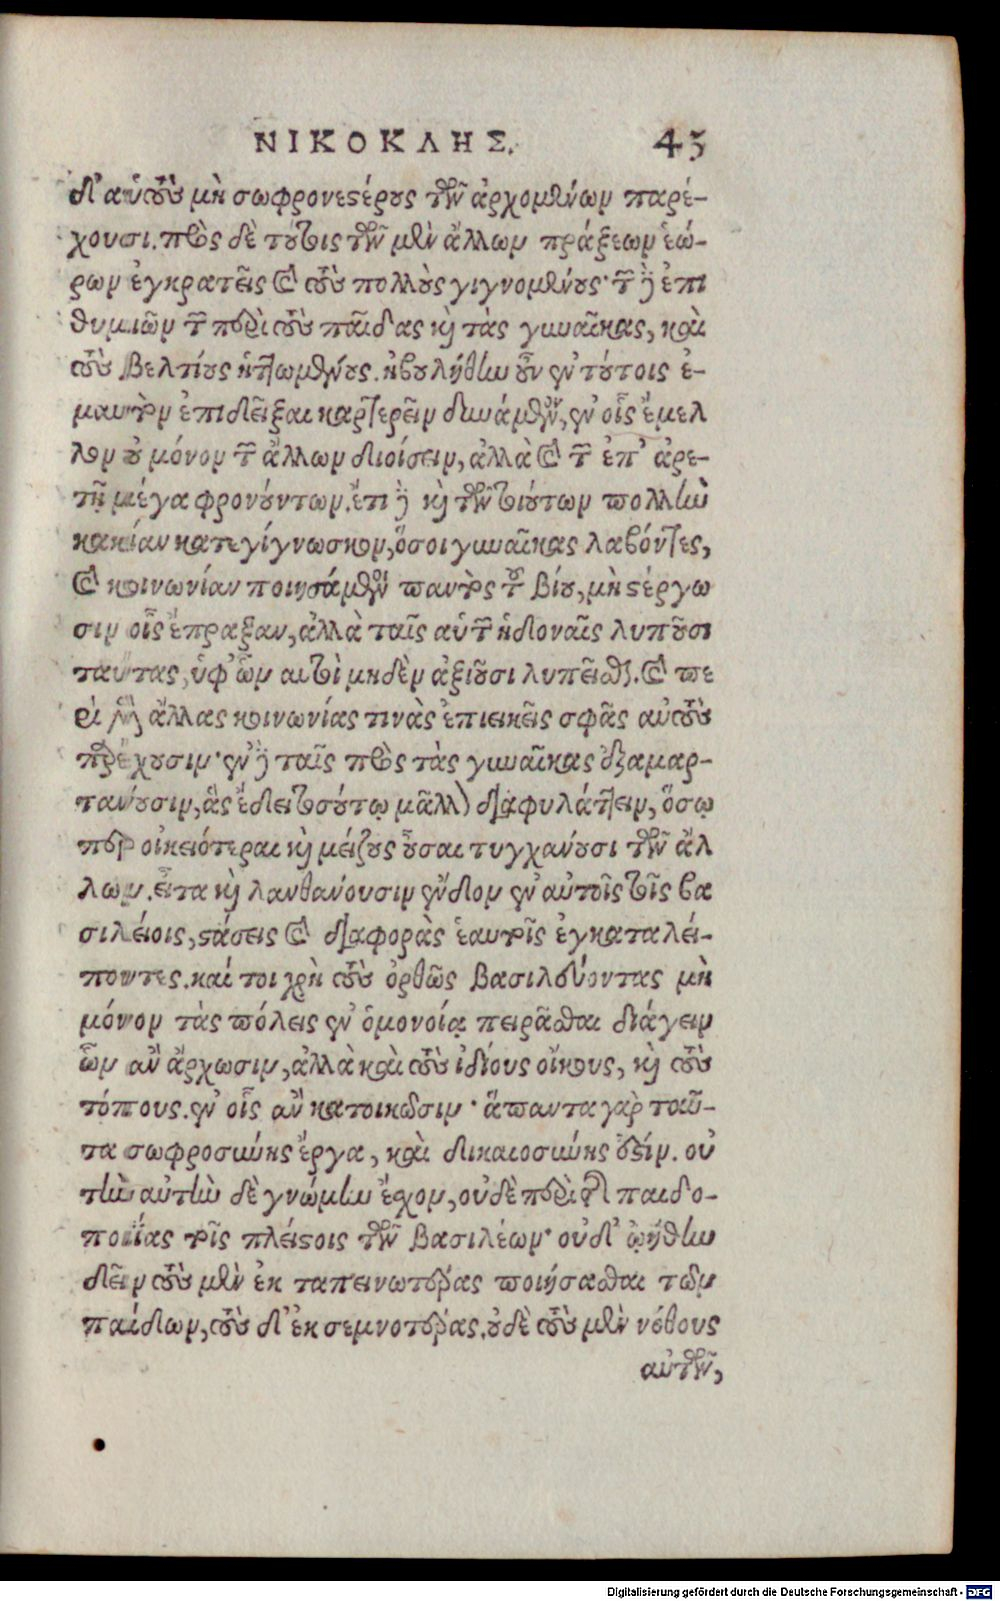 ΝΙΚΟΚΛΗΣ. 45
δ' αὑτοὺς μὴ σωφρονεστέρους τῶν ἀρχομένων παρέ-
χουσι. πρὸς δὲ τούτοις τῶν μὲν ἄλλων πράξεων ἑώ-
ρων ἐγκρατεῖς καὶ τοὺς πολλοὺς γιγνομένους· τῶν δὲ ἐπι
θυμιῶν τῶν περὶ τοὺς παῖδας καὶ τὰς γυναῖκας, καὶ
τοὺς βελτίους ἡττωμένους. ἠβουλήθην οὖν ἐν τούτοις ἐ-
μαυτὸν ἐπιδεῖξαι καρτερεῖν δυνάμενον, ἐν οἷς ἔμελ
λον οὐ μόνον τῶν ἄλλων διοίσειν, ἀλλὰ καὶ τῶν ἐπ' ἀρε-
τῇ μέγα φρονούντων. ἔτι δὲ καὶ τῶν τοιούτων πολλὴν
κακίαν κατεγίγνωσκον, ὅσοι γυναῖκας λαβόντες,
καὶ κοινωνίαν ποιησάμενοι παντὸς τοῦ βίου, μὴ στέργω
σιν οἷς ἔπραξαν, ἀλλὰ ταῖς αὑτῶν ἡδοναῖς λυποῦσι
ταύτας, ὑφ' ὧν αὐτοὶ μηδὲν ἀξιοῦσι λυπεῖσθαι. καὶ πε
ρὶ μὲν ἄλλας κοινωνίας τινὰς ἐπιεικεῖς σφᾶς αὐτοὺς
παρέχουσιν· ἐν δὲ ταῖς πρὸς τὰς γυναῖκας ἐξαμαρ-
τάνουσιν, ἃς ἔδει τοσούτῳ μᾶλλον διαφυλάττειν, ὅσῳ
περ οἰκειότεραι καὶ μείζους οὖσαι τυγχάνουσι τῶν ἄλ
λων. εἶτα καὶ λανθάνουσιν ἔνδον ἐν αὐτοῖς τοῖς βα
σιλείοις, στάσεις καὶ διαφορὰς ἑαυτοῖς ἐγκαταλεί-
ποντες. καί τοι χρὴ τοὺς ὀρθῶς βασιλεύοντας μὴ
μόνον τὰς πόλεις ἐν ὁμονοίᾳ πειρᾶσθαι διάγειν
ὧν ἂν ἄρχωσιν, ἀλλὰ καὶ τοὺς ἰδίους οἴκους, καὶ τοὺς
τόπους. ἐν οἷς ἂν κατοικῶσιν· ἅπαντα γὰρ ταῦ-
τα σωφροσύνης ἔργα, καὶ δικαιοσύνης ἐστίν. οὐ
τὴν αὐτὴν δὲ γνώμην ἔσχον, οὐδὲ περὶ τῆς παιδο-
ποιΐας τοῖς πλείστοις τῶν βασιλέων· οὐδ' ᾠήθην
δεῖν τοὺς μὲν ἐκ ταπεινωτέρας ποιήσασθαι τῶν
παίδων, τοὺς δ' ἐκ σεμνοτέρας. οὐδὲ τοὺς μὲν νόθους
αὐτῶν,
Digitalisierung gefördert durch die Deutsche Forschungsgemeinschaft - DFG